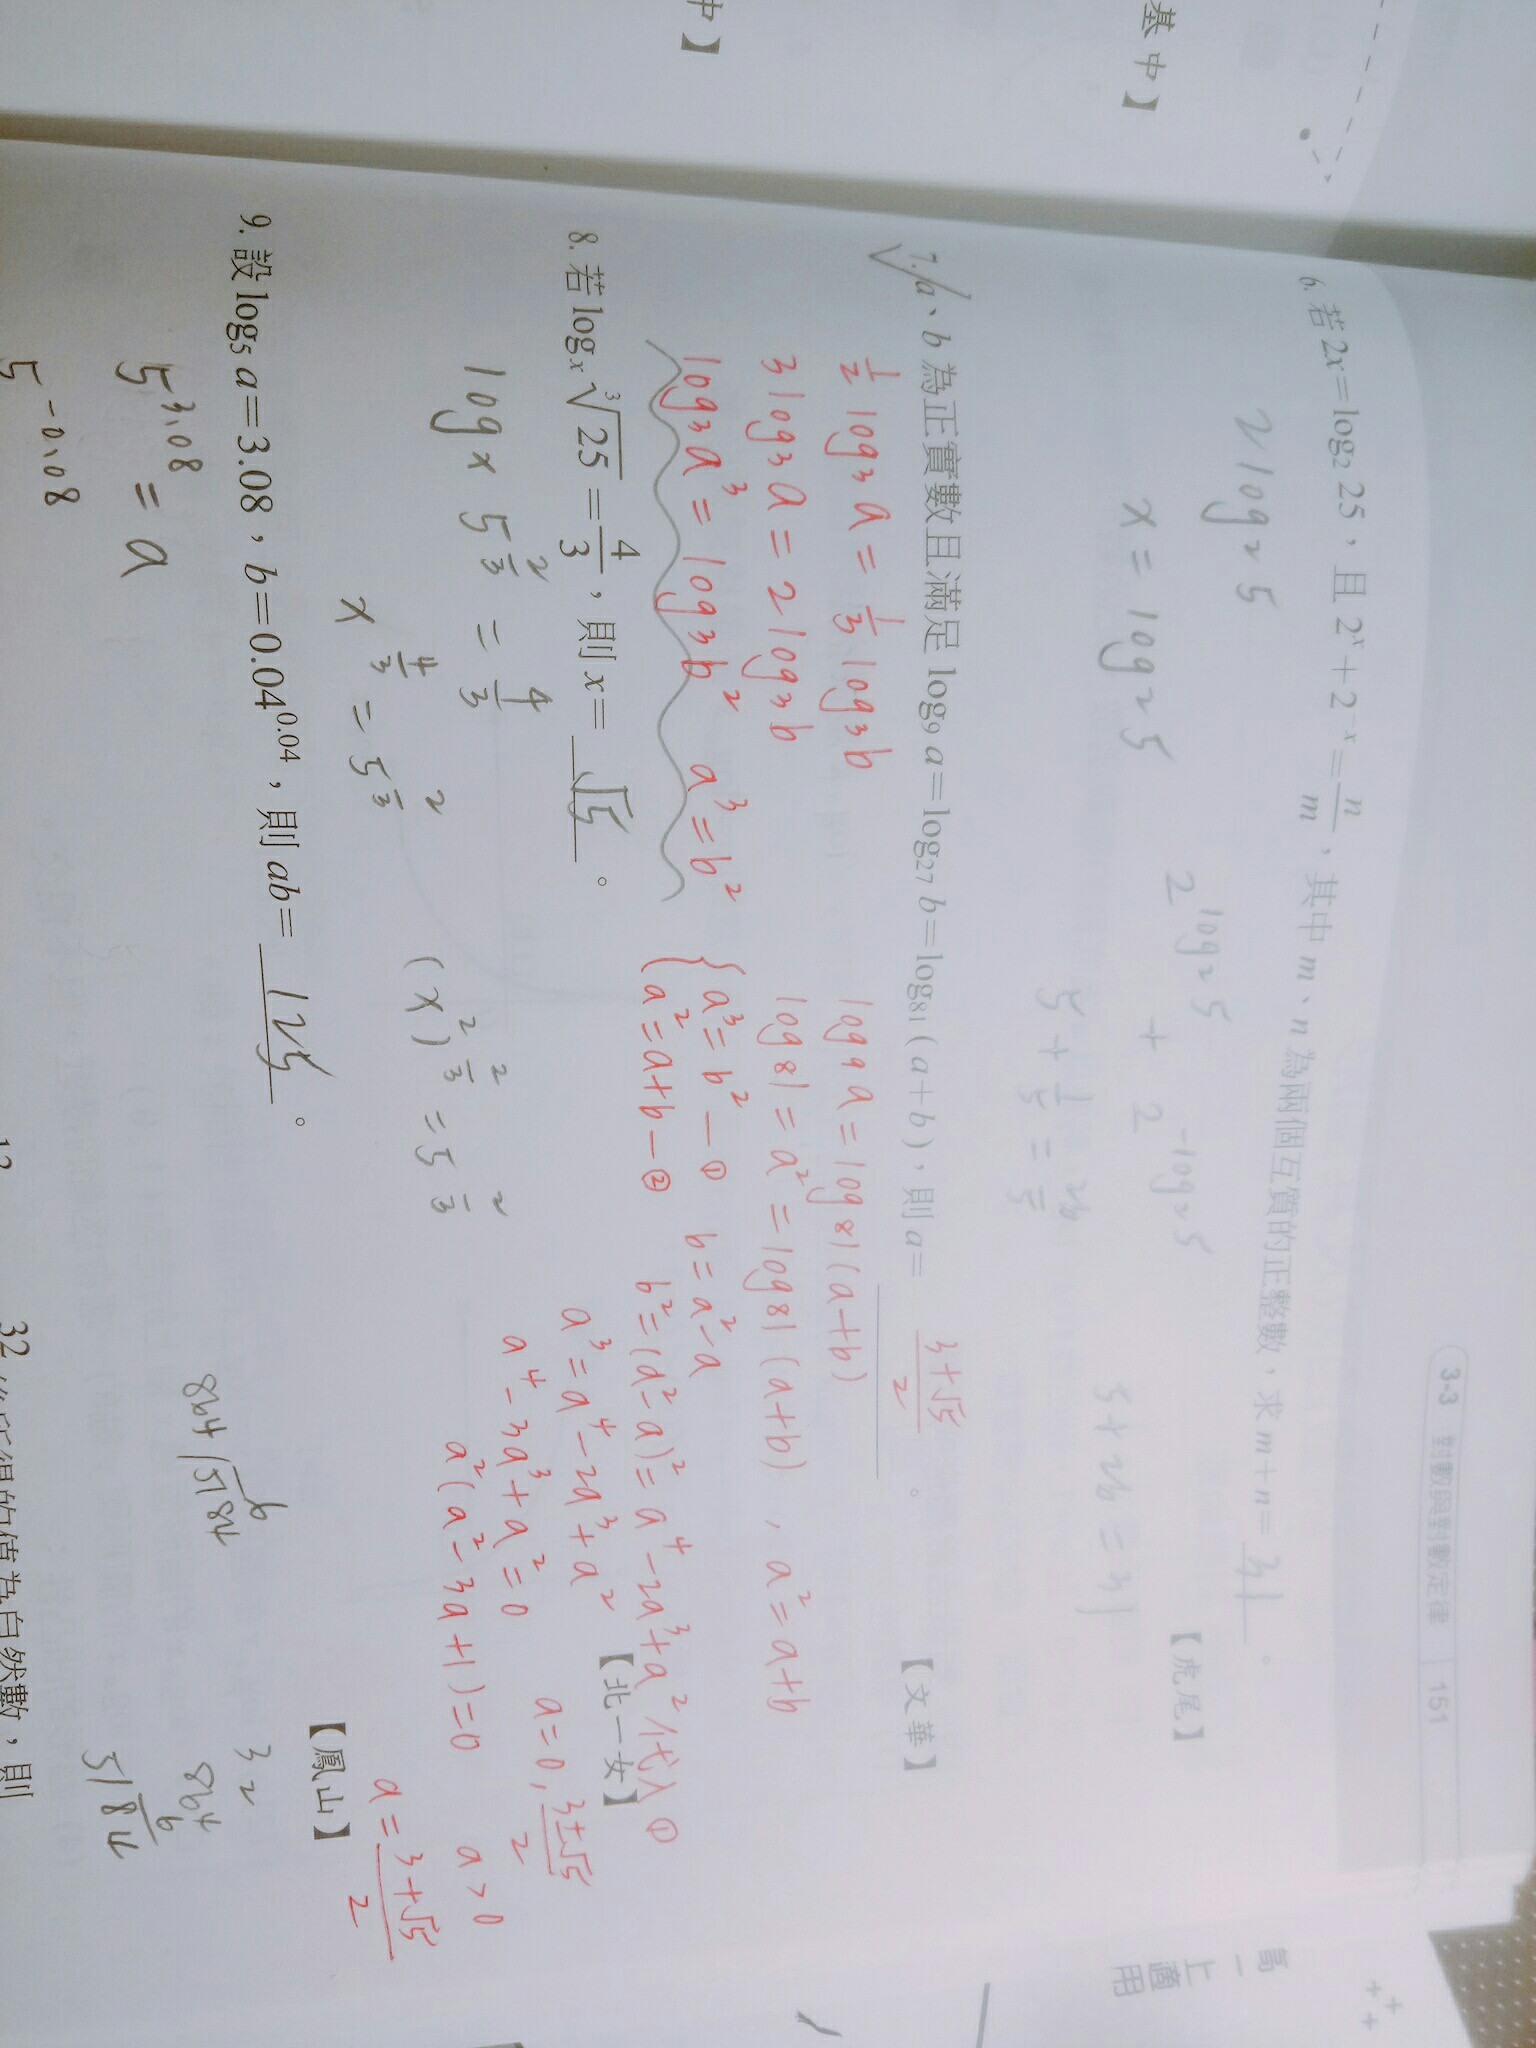 基中】
中】
3-3 對數與對數定律 151
6. 若 2x=log₂ 25，且 2ˣ+2⁻ˣ=n/m，其中 m、n 為兩個互質的正整數，求 m+n= 31 。
【虎尾】
2log₂5
x=log₂5
2^log₂5 + 2^-log₂5
5+1/5=26/5
5+26=31
7. a、b 為正實數且滿足 log₉ a=log₂₇ b=log₈₁(a+b)，則 a= (3+√5)/2 。
【文華】
1/2 log₃a=1/3 log₃b
3log₃a=2log₃b
log₃a³=log₃b² a³=b²
log₉a=log₈₁(a+b)
log₈₁=a²=log₈₁(a+b)，a²=a+b
{a³=b²—①
a²=a+b—②
b=a²-a
b²=(a²-a)²=a⁴-2a³+a²代入①
a³=a⁴-2a³+a²
a⁴-3a³+a²=0
a²(a²-3a+1)=0
a=0, (3±√5)/2
a>0
a=(3+√5)/2
8. 若 logₓ ³√25=4/3，則 x= √5 。
【北一女】
logₓ5^2/3=4/3
x^4/3=5^2/3
(x²)^2/3=5^2/3
9. 設 log₅ a=3.08，b=0.04^0.04，則 ab= 125 。
【鳳山】
5^3.08=a
5^-0.08
864/5184
6
32
864
6
5184
高一上適用